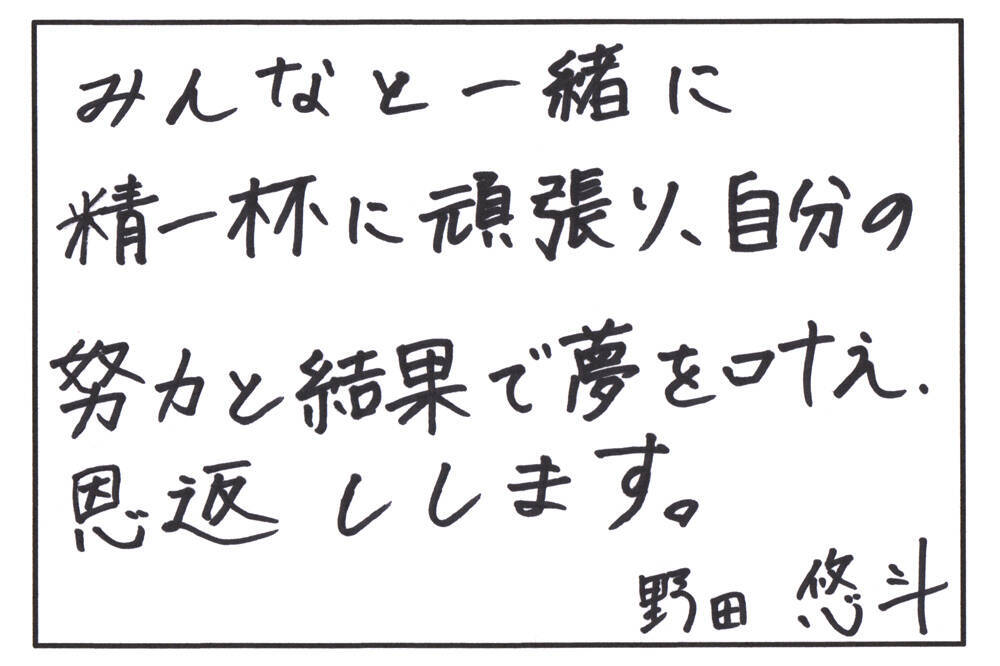 みんなと一緒に
精一杯に頑張り、自分の
努力と結果で夢を叶え、
恩返ししします。
野田 悠斗